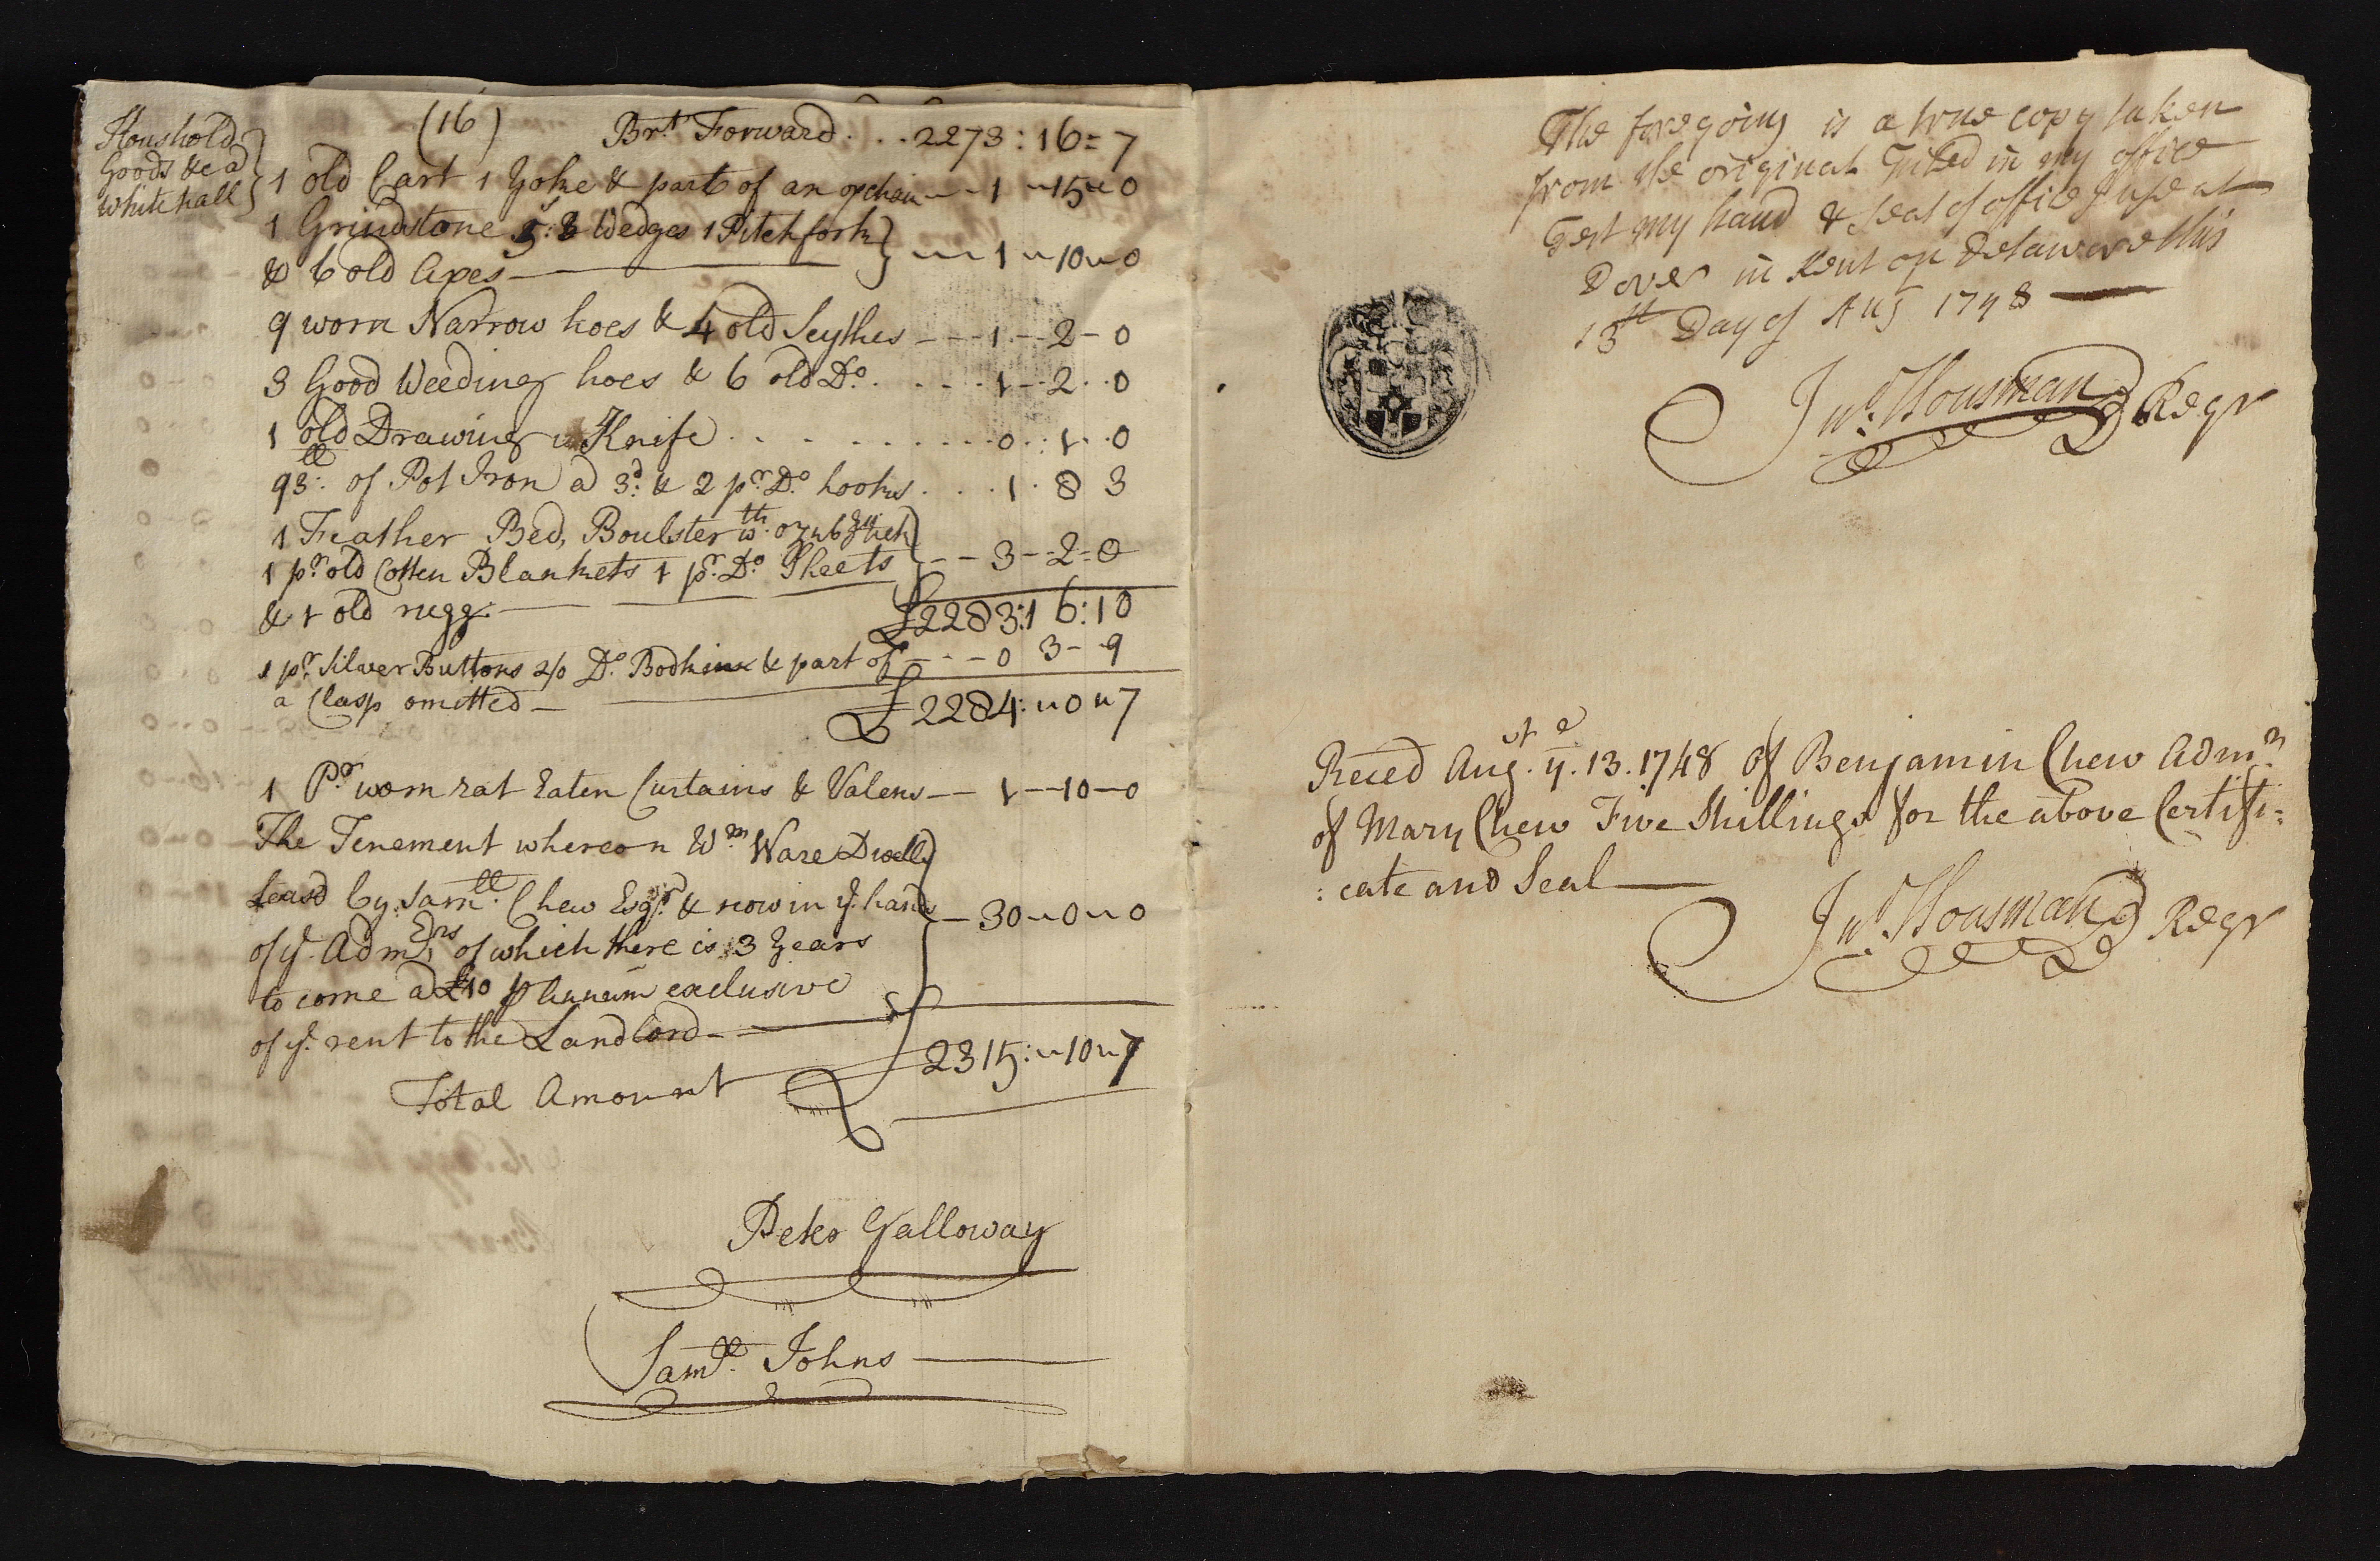 (16)
Houshold
Goods &c a
white hall
Brt. Forward . . . 2273 : 16 = 7
1 old Cart 1 Yoke & part of an oxchain - - 1 - 15 - 0
1 Grindstone 3 Wedges 1 Pitchfork
& 6 old Axes - - 1 - 10 - 0
9 worn Narrow hoes & 4 old Scythes - - - 1 - - 2 - 0
3 Good Weeding hoes & 6 old Do. . . . - - 1 - - 2 . . 0
1 old Drawing Knife . . . . . . . . . . 0 . : 1 . . 0
93 ll: of Pot Iron a 3d: & 2 pr. Do. hooks . . . 1 . 8 3
1 Feather Bed, Boulster wth. oznbg tick
1 pr. old Cotten Blankets 1 pr. Do. Sheets - - 3 - = 2 = 0
& 1 old rugg -
£2283 : 16 : 10
1 pr. Silver Buttons 2/0 Do. Bodkin & part of - - - 0 3 - - 9
a Clasp omitted -
£ 2284 : " 0 " 7
1 Pr. worn rat Eaten Curtains & Valens - - 1 - - 10 - 0
The Tenement whereon Wm. Ware Dwells
leasd by Samll. Chew Esqr. & now in ye. hands
of ye. Adm Ers of which there is 3 Years
to come a £10 p annum exclusive
of ye. rent to the Landlord - - 30 " 0 " 0
Total Amount £ 2315 : " 10 " 7
Peter Galloway
Samll. Johns
The foregoing is a true copy taken
from the original filed in my office
Test my hand & seal of office I use at
Dover in Kent on Delaware this
13th Day of Aug 1748
Jno. Housman Regr
Reced Augst. ye. 13. 1748 of Benjamin Chew Admr.
of Mary Chew Five Shillings for the above Certifi:
:cate and Seal
Jno. Housman Regr